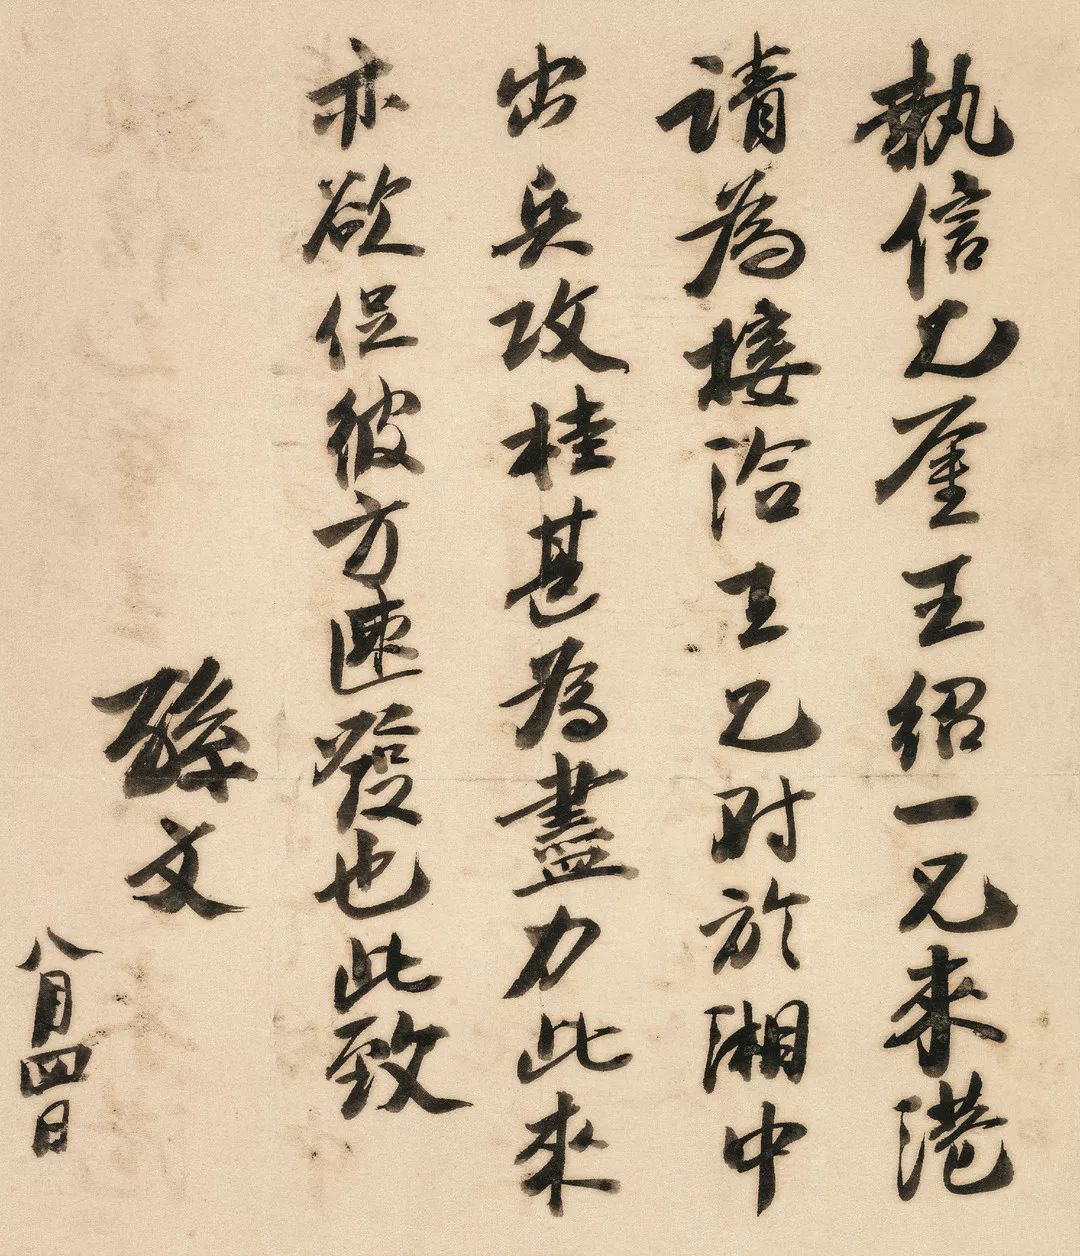 執信兄鑒王紹一兄來港
請為接洽王兄對於湘中
出兵攻桂甚為盡力此來
亦欲促彼方速發也此致
孫文
八月四日